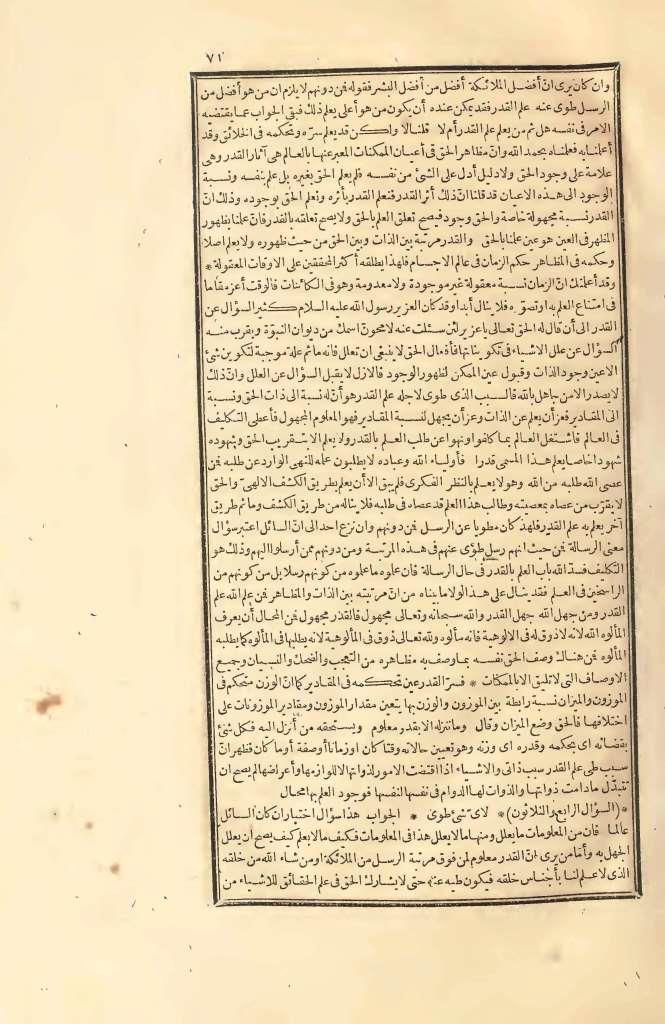 ٧١
وان كان يرى انّ أفضل الملائكة أفضل من أفضل البشر فقوله فمن دونهم لا يلزم ان من هو أفضل من
الرسل طوى عنه علم القدر فقد يمكن عنده أن يكون من هو أعلى يعلم ذلك فبقى الجواب عما يقتضيه
الامر فى نفسه هل ثم من يعلم علم القدر أم لا قلنا لا ولكن قد يعلم سرّه وتحكمه فى الخلائق وقد
أعلمنا به فعلمناه بحمد الله وانّ مظاهر الحق فى أعيان الممكنات المعبر عنها بالعالم هى آثار القدر وهى
علامة على وجود الحق ولا دليل أدل على الشئ من نفسه فلم يعلم الحق بغيره بل علم بنفسه ونسبة
الوجود الى هذه الاعيان قد قلنا انّ ذلك أثر القدر فنعلم القدر بأثره ونعلم الحق بوجوده وذلك انّ
القدر نسبة مجهولة خاصة والحق وجود فيصح تعلق العلم بالحق ولا يصح تعلقه بالقدر فانّ علمنا بظهور
المظهر فى العين هو عين علمنا بالحق والقدر مرتبة بين الذات وبين الحق من حيث ظهوره ولا يعلم اصلا
وحكمه فى المظاهر حكم الزمان فى عالم الاجسام فلهذا يطلقه أكثر المحققين على الاوقات المعقولة *
وقد أعلمتك انّ الزمان نسبة معقولة غير موجودة ولا معدومة وهو فى الكائنات فالوقت أعز مقاما
فى امتناع العلم به او تصوّره فلا ينال أبدا وقد كان العزير رسول الله عليه السلام كثير السؤال عن
القدر الى أن قال له الحق تعالى يا عزير لئن سئلت عنه لامحونّ اسمك من ديوان النبوّة ويقرب منه
السؤال عن علل الاشياء فى تكويناتها فأفعال الحق لا ينبغى ان تعلل فانه ماثم علة موجبة لتكوين شئ
الا عين وجود الذات وقبول عين الممكن لظهور الوجود فالازل لا يقبل السؤال عن العلل وانّ ذلك
لا يصدر الا من جاهل بالله فالسبب الذى طوى لاجله علم القدر هو أنّ له نسبة الى ذات الحق ونسبة
الى المقادير فعز أن يعلم عن الذات وعز أن يجهل لنسبة المقادير فهو المعلوم المجهول فأعطى التكليف
فى العالم فاشتغل العالم بما كلفوا ونهوا عن طلب العلم بالقدر ولا يعلم الا بتقريب الحق وشهوده
شهودا خاصا يعلم هذا المسمى قدرا فأولياء الله وعباده لا يطلبون علمه للنهى الوارد عن طلبه فمن
عصى الله طلبه من الله وهو لا يعلم بالنظر الفكرى فلم يبق الا أن يعلم بطريق الكشف الالهىّ والحق
لا يقرّب من عصاه بمعصيته وطالب هذا العلم قد عصاه فى طلبه فلا يناله من طريق الكشف وما ثم طريق
آخر يعلم به علم القدر فلهذا كان مطويا عن الرسل فمن دونهم وان نزع احد الى انّ السائل اعتبر سؤال
معنى الرسالة فمن حيث انهم رسل طوى عنهم فى هذه المرتبة ومن دونهم ممن أرسلوا اليهم وذلك هو
التكليف فسدّ الله باب العلم بالقدر فى حال الرسالة فان علموه ما علموه من كونهم رسلا بل من كونهم من
الراسخين فى العلم فقد ينال على هذا لولا ما بيناه من انّ مرتبته بين الذات والمظاهر فمن علم الله علم
القدر ومن جهل الله جهل القدر والله سبحانه وتعالى مجهول فالقدر مجهول فمن المحال أن يعرف
المألوه الله لانه لا ذوق له فى الالوهة فانه مألوه ولله تعالى ذوق فى المألوهية لانه يطلبها فى المألوه كما يطلبه
المألوه فمن هناك وصف الحق نفسه بما وصف به مظاهره من التعجب والضحك والنسيان وجميع
الاوصاف التى لا تليق الا بالممكنات * فسرّ القدر عين تحكمه فى المقادير كما انّ الوزن متحكم فى
الموزون والميزان نسبة رابطة بين الموزون والوزن بها يتعين مقدار الموزون ومقادير الموزونات على
اختلافها فالحق وضع الميزان وقال وما ننزله الا بقدر معلوم ويستحقه من أنزل اليه فكل شئ
بقضائه اى بحكمه وقدره اى وزنه وهو تعيين حالاته وقتا كان اوزمانا أوصفة أوما كان فظهر انّ
سبب طى علم القدر سبب ذاتى والاشياء اذا اقتضت الامور لذواتها لا للوازمها وأعراضها لم يصح ان
تتبدّل مادامت ذواتها والذوات لها الدوام فى نفسها لنفسها فوجود العلم بها محال
* (السؤال الرابع والثلاثون) * لاى شئ طوى * الجواب هذا سؤال اختبار ان كان السائل
عالما فان من المعلومات ما يعلل ومنها ما لا يعلل هذا فى المعلومات فكيف ما لا يعلم كيف يصح أن يعلل
الجهل به وأما من يرى انّ القدر معلوم لمن فوق مرتبة الرسل من الملائكة او من شاء الله من خلقه
الذى لا علم لنا بأجناس خلقه فيكون طيه عنه حتى لا يشارك الحق فى علم الحقائق للاشياء من